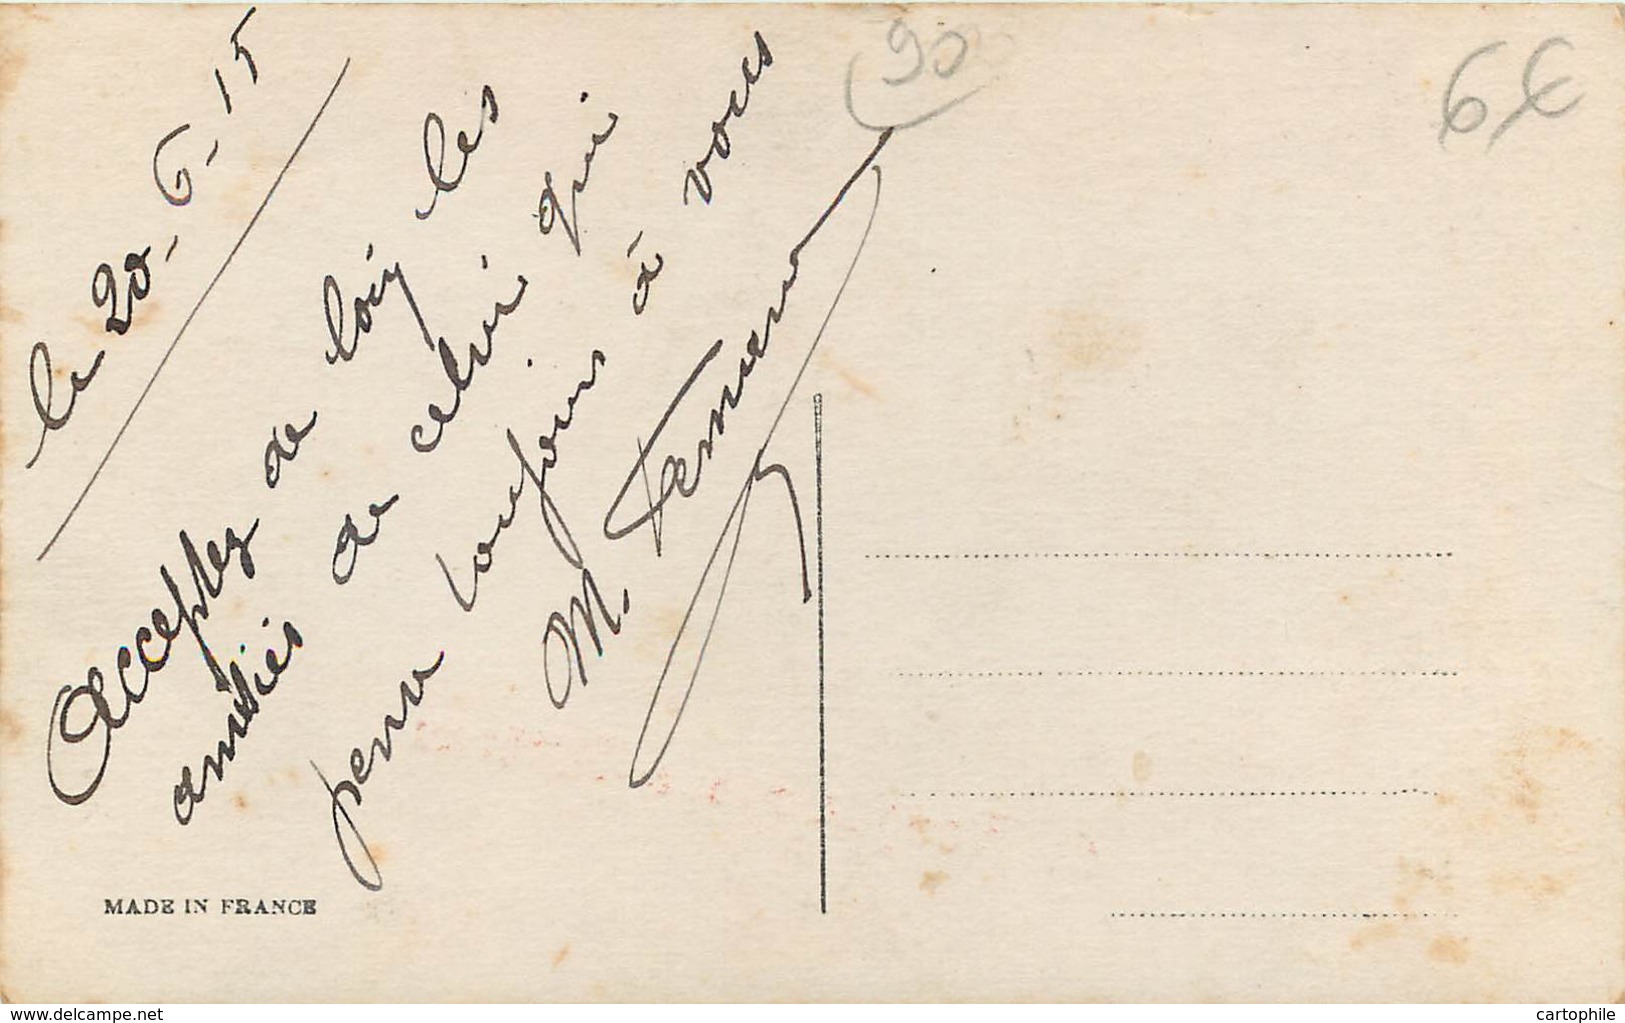 le 20-6-15
Acceptez de loin les
amitiés de celui qui
pense toujours à vous
M.
90
6€
MADE IN FRANCE
www.delcampe.net
cartophile